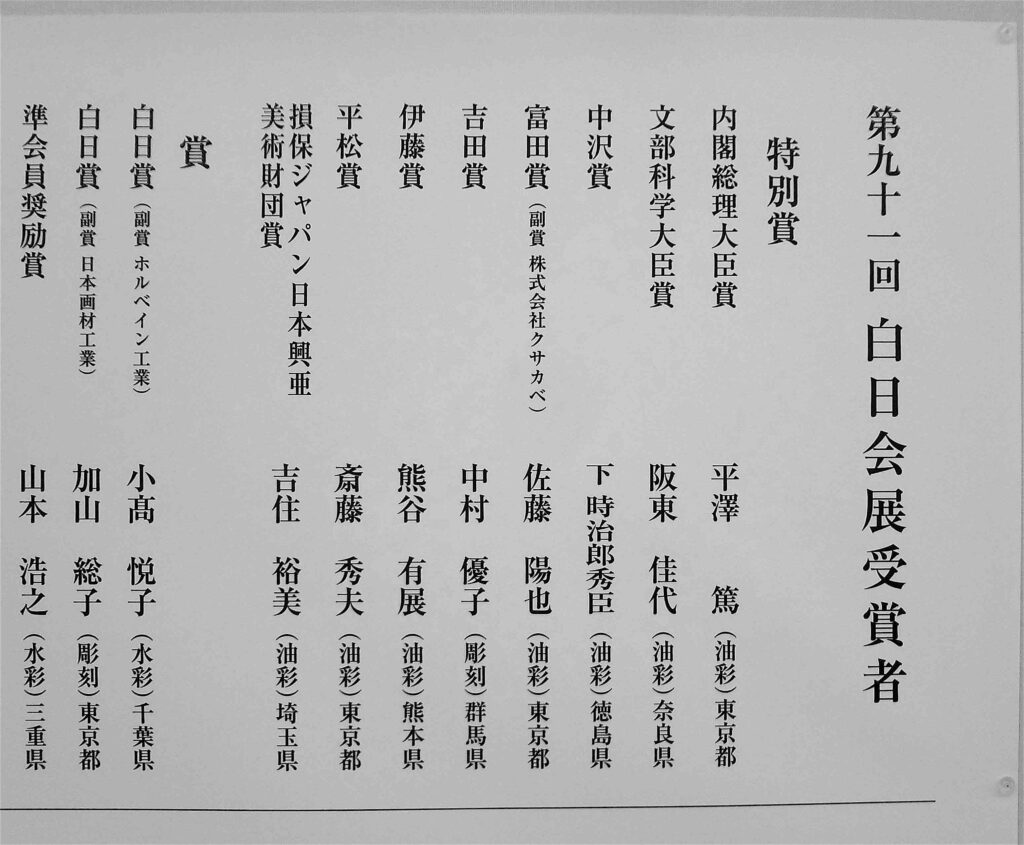 第九十一回 白日会展受賞者
特別賞
内閣総理大臣賞 平澤 篤（油彩）東京都
文部科学大臣賞 阪東 佳代（油彩）奈良県
中沢賞 下 時治郎秀臣（油彩）徳島県
富田賞（副賞 株式会社クサカベ） 佐藤 陽也（油彩）東京都
吉田賞 中村 優子（彫刻）群馬県
伊藤賞 熊谷 有展（油彩）熊本県
平松賞 斎藤 秀夫（油彩）東京都
損保ジャパン日本興亜
美術財団賞 吉住 裕美（油彩）埼玉県
賞
白日賞（副賞 ホルベイン工業） 小髙 悦子（水彩）千葉県
白日賞（副賞 日本画材工業） 加山 総子（彫刻）東京都
準会員奨励賞 山本 浩之（水彩）三重県